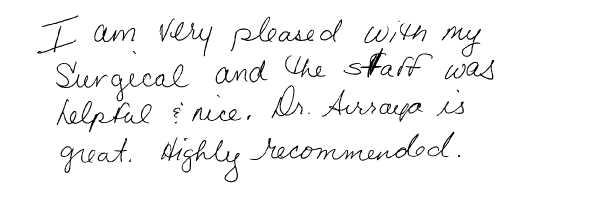 I am very pleased with my
Surgical and the staff was
helpful & nice. Dr. Aurraya is
great. Highly recommended.